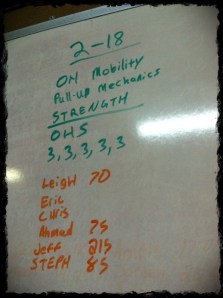 2-18
OH Mobility
Pull-up Mechanics
STRENGTH
OHS
3, 3, 3, 3, 3
Leigh 70
Eric
Chris
Ahmad 75
Jeff 215
STEPH 85